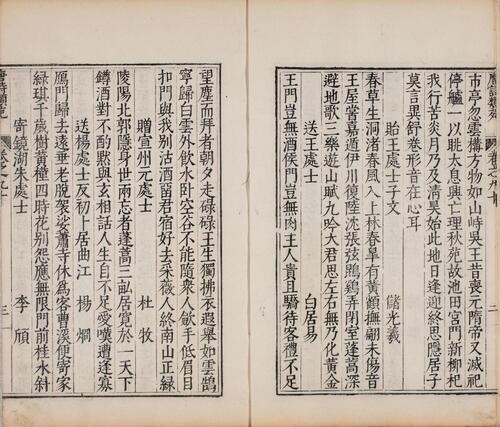 市亭忽雲構方物如山峙吳王昔喪元隋帝又滅祀
停艫一以眺太息興亡理秋苑故池田宮門新柳杞
我行苦炎月乃及清昊始此地日逢迎終思隱君子
莫言異舒卷形音在心耳
貽王處士子文 儲光羲
春草生洞渚春風入上林春臯有黃鸝撫翮未傷音
王屋嘗嘉遁伊川復陸沈張弦鵾雞弄閉室蓬蒿深
避地歌三樂遊山賦九吟大君思左右無乃化黃金
送王處士 白居易
王門豈無酒侯門豈無肉主人貴且驕待客禮不足
望塵而拜者朝夕走碌碌王生獨拂衣遐舉如雲鵠
寧歸白雲外飲水卧空谷不能隨衆人歛手低眉目
扣門與我别沽酒留君宿好去采薇人終南山正緑
贈宣州元處士 杜牧
陵陽北郭隱身世兩忘者蓬蒿三畝居寛於一天下
鐏酒對不酌黙與玄相話人生自不足愛嘆遭逢寡
送楊處士反初卜居曲江 楊烱
鴈門歸去遠垂老脫袈裟蕭寺休爲客曹溪便寄家
緑琪千歲樹黃槿四時花别怨應無限門前桂水斜
寄鏡湖朱處士 李頎